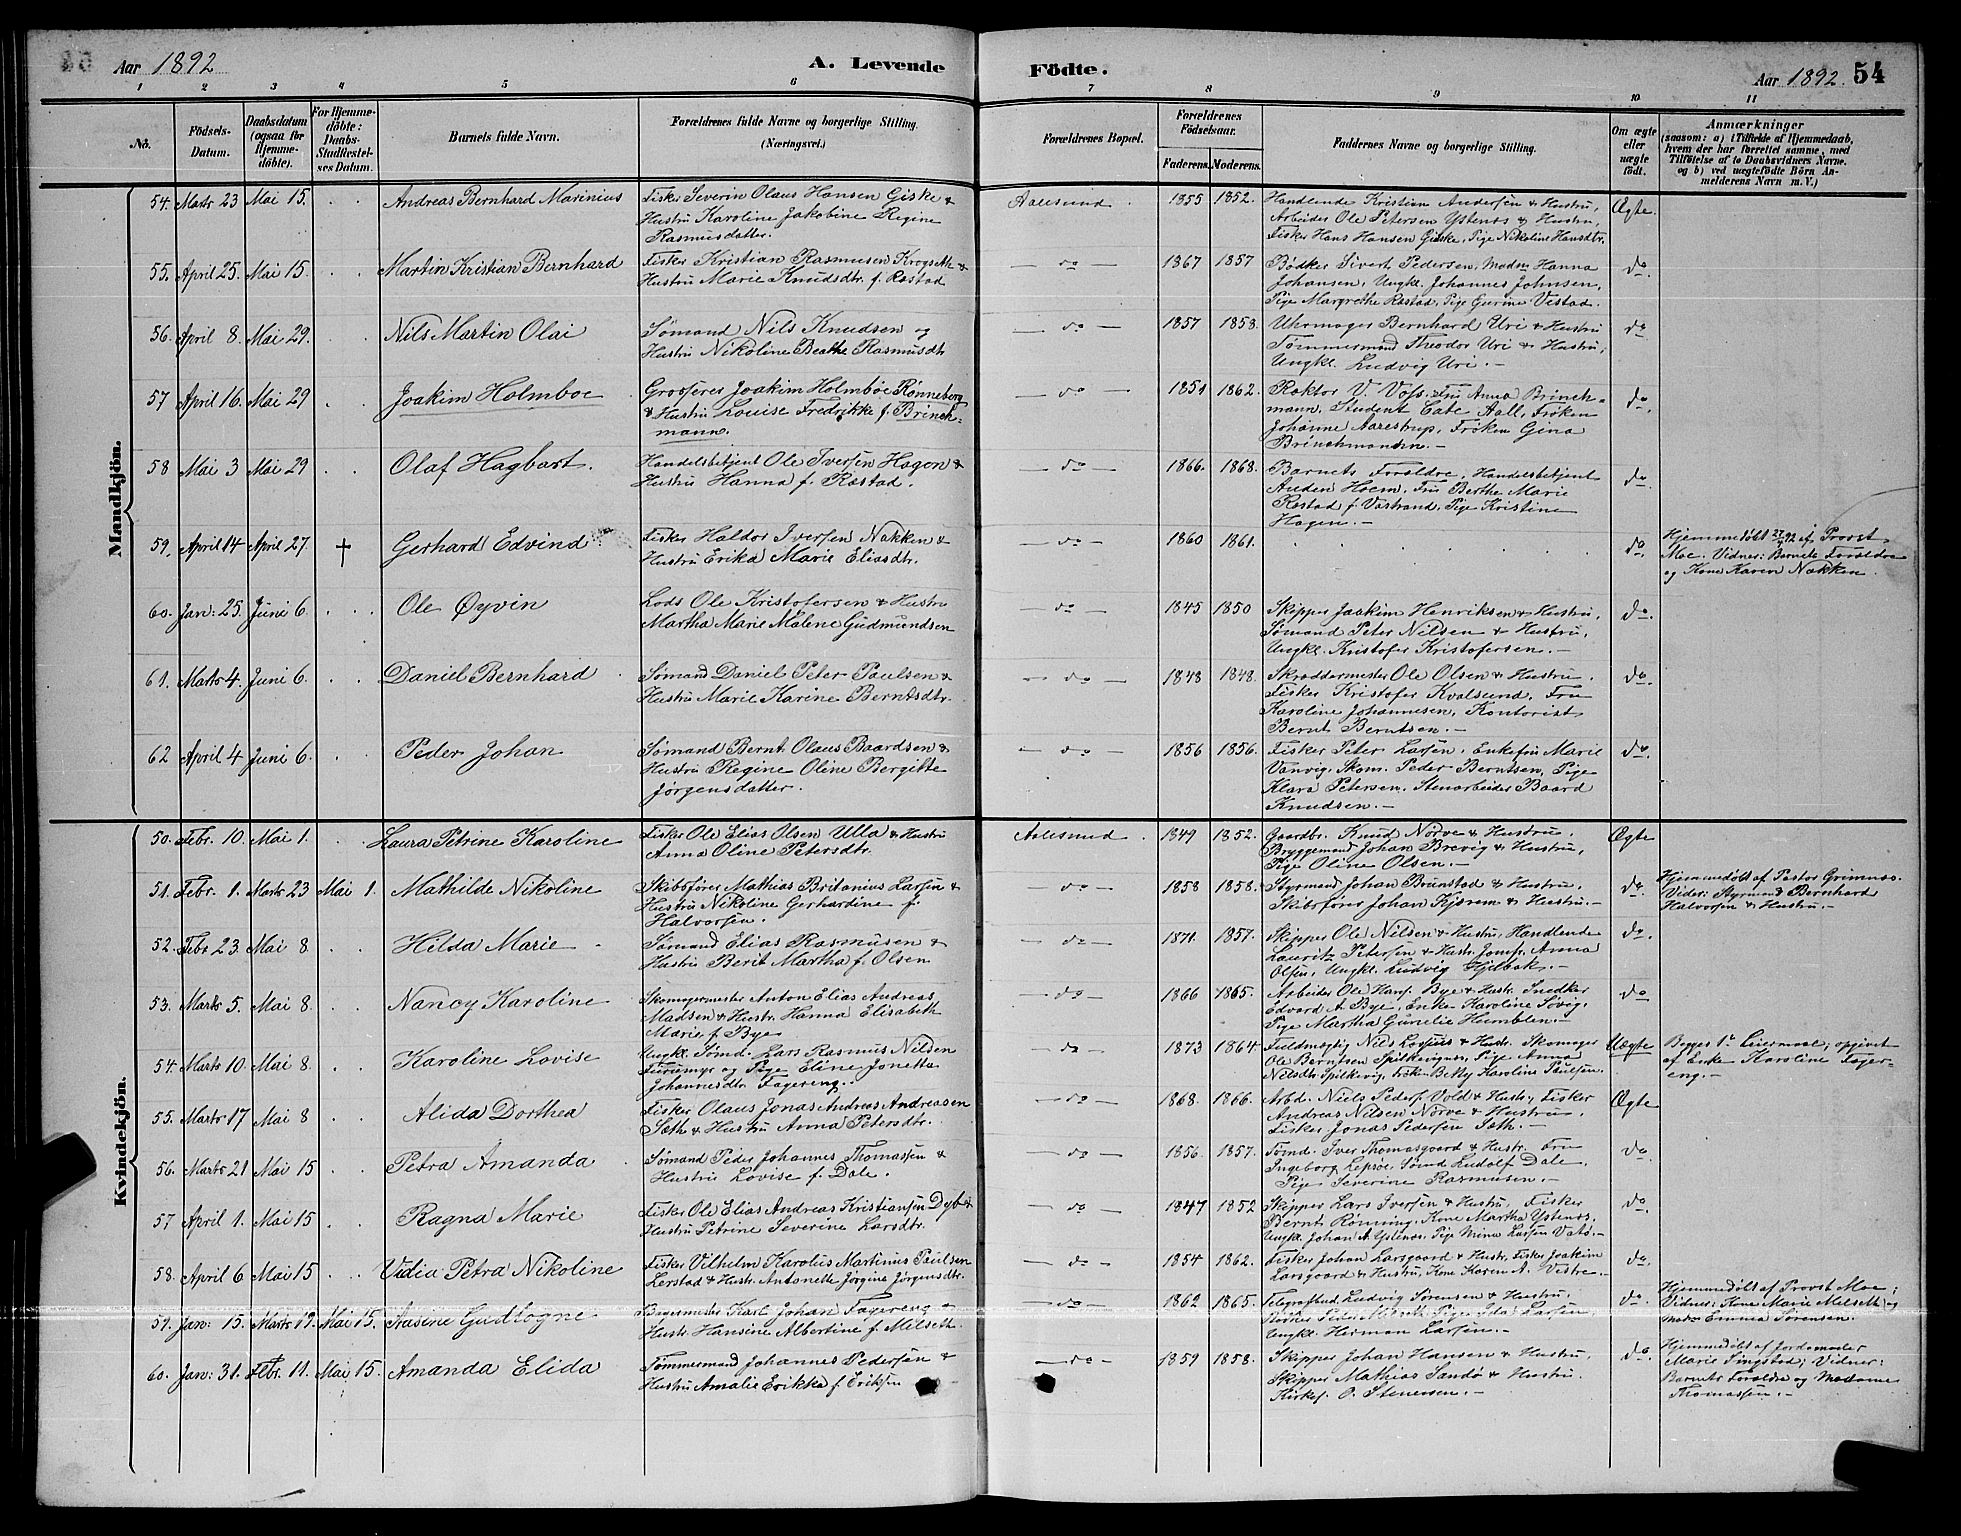 Aar 1892
A. Levende
Födte.
Aar 1892.
54
1 2 3 4 5 6 7 8 9 10 11
No.
Födsels-
Datum.
Daabsdatum
(ogsaa for
Hjemme-
döbte).
For Hjemme-
döbte:
Daabs-
Stadfæstel-
ses Datum.
Barnets fulde Navn.
Forældrenes fulde Navne og borgerlige Stilling.
(Næringsvei.)
Forældrenes Bopæl.
Forældrenes
Födselsaar.
Faderens. Moderens.
Faddernes Navne og borgerlige Stilling.
Om ægte
eller
uægte
födt.
Anmærkninger
(saasom: a) i Tilfælde af Hjemmedaab,
hvem der har forrettet samme, med
Tilföielse af to Daabsvidners Navne.
og b) ved uægtefödte Börn An-
melderens Navn m. V.)
Mandkjön.
54. Marts 23 Mai 15. Andreas Bernhard Marinius
Fisker Severin Olaus Hansen Giske &
Hustru Karoline Jakobine Regine
Rasmusdatter.
Aalesund. 1855 1852.
Handlende Kristian Andersen & Hustru,
Arbeider Ole Petersen Ystenes & Hustru,
Fisker Hans Hansen Giske, Pige Nikoline Hansdtr.
Ægte.
55. April 25. Mai 15. Martin Kristian Bernhard
Fisker Kristian Rasmusen Krogseth &
Hustru Marie Knudsdtr. f. Rostad
— do — 1867 1857
Bødker Sivert Pedersen, Madm Hanna
Johansen, Ungkl. Johannes Johnsen,
Pige Margrethe Rostad, Pige Gurine Vestad.
do.
56. April 8. Mai 29. Nils Martin Olai
Sømand Nils Knudsen og
Hustru Nikoline Beathe Rasmusdtr
— do — 1857 1858.
Uhrmager Bernhard Uri & Hustru
Tømmermand Theodor Uri & Hustru,
Ungkl. Ludvig Uri. —
do
57 April 16. Mai 29 Joakim Holmboe
Grosserer Joakim Holmboe Rønneberg
& Hustru Louise Fredrikke f. Brinch-
mann.
— do — 1851 1862.
Rektor V. Voss. Fru Anna Brinch-
mann, Student Cato Aall, Frøken
Johanne Aarestrup, Frøken Gina
Brinchmann. —
do.
58 Mai 3 Mai 29 Olaf Hagbart.
Handelsbetjent Ole Iversen Hagen &
Hustru Hanna f. Rostad.
— do — 1866. 1868.
Barnets Forældre, Handelsbetjent
Anden Hoem, Fru Berthe Marie
Rostad f. Vatrand, Pige Kristine
Hagen. —
do.
59. April 14 April 27. † Gerhard Edvind
Fisker Haldor Iversen Nakken &
Hustru Erika Marie Eliasdtr.
— do — 1860 1861.
do.
Hjemmedøbt 27/4 92 af Provst
Moe. Vidner: Barnets Forældre
og Kone Karen Nakken.
60. Jan: 25. Juni 6. Ole Øyvin
Lods Ole Kristofersen & Hustru
Martha Marie Malene Gudmundsen
— do — 1845 1850
Skipper Joakim Henriksen & Hustru,
Sømand Peter Nilsen & Hustru,
Ungkl. Kristofer Kristofersen. —
do.
61. Marts 4. Juni 6. Daniel Bernhard
Sømand Daniel Peter Paulsen &
Hustru Marie Karine Berntsdtr.
— do — 1848 1848.
Skræddermester Ole Olsen & Hustru.
Fisker Kristofer Kvalsund, Fru
Karoline Johannesen, Kontorist
Bernt Berntsen. —
do.
62 April 4 Juni 6. Peder Johan
Sømand Bernt Olaus Baardsen &
Hustru Regine Oline Bergitte
Jörgensdatter.
— do — 1856 1856.
Fisker Peter Larsen, Enkefru Marie
Vanvig, Skom. Peder Berntsen, Pige
Klara Petersen, Stenarbeider Baard
Knudsen. —
do.
Kvindekjön.
50. Febr. 10. Mai 1. Laura Petrine Karoline
Fisker Ole Elias Olsen Ulla & Hustru
Anna Oline Petersdtr.
Aalesund. 1849 1852.
Gaardbr. Knud Nørve & Hustru,
Bryggemand Johan Brevig & Hustru,
Pige Oline Olsen. —
Ægte
51. Febr. 1. Marts 23 Mai 1. Mathilde Nikoline
Skibsfører Mathias Britanius Larsen &
Hustru Nikoline Gerhardine f.
Halvorsen.
— do — 1858 1858.
Styrmand Johan Brunstad & Hustru.
Skibsfører Johan Kjærem & Hustru. —
do.
Hjemmedøbt af Pastor Grimnæs.
Vidner: Styrmand Bernhard
Halvorsen & Hustru. —
52. Febr 23. Mai 8 Hilda Marie
Sømand Elias Rasmusen &
Hustru Berit Martha f. Olsen
— do — 1871. 1857.
Skipper Ole Nilsen & Hustru, Handlende
Lauritz Petersen & Hustr. Jomfr. Anna
Olsen, Ungkl. Ludvig Hjelbak. —
do.
53. Marts 5. Mai 8. Nancy Karoline
Skomagermester Anton Elias Andreas
Madsen & Hustr. Hanna Elisabeth
Marie f. Bye
— do — 1866 1865.
Arbeider Ole Hans. Bye & Hustr. Snedker
Edvard A. Bye, Enke Karoline Søvig,
Pige Martha Gunelie Humblen. —
do
54 Marts 10 Mai 8. Karoline Lovise
Ungkl. Sømd. Lars Rasmus Nilsen
Furumyr og Pige Eline Jonetta
Johannesdtr. Fagereng. —
— do — 1873 1864
Fuldmægtig Nils Lorsius & Hustr. Skomager
Ole Berntsen Spilkevignes, Pige Anna
Nilsdtr Spilkevig, Frøk. Betty Karoline Paulsen.
Uægte
Begges 1ste Leiermaal; opgivet
af Enke Karoline Fager-
eng. —
55. Marts 17 Mai 8 Alida Dorthea
Fisker Olaus Jonas Andreas Andreasen
Sæth & Hustru Anna Petersdtr.
— do — 1868. 1866.
Arbd. Niels Peders. Vold & Hustr., Fisker
Andreas Nilsen Nørve & Hustru,
Fisker Jonas Pedersen Sæth. —
Ægte
56. Marts 21 Mai 15 Petra Amanda
Sømand Peder Johannes Thomassen &
Hustru Lovise f. Dale.
— do — 1856. 1857.
Tømd. Iver Thomasgaard & Hustr. Fru
Ingeborg Lepsøe, Sømd Ludolf Dale,
Pige Severine Rasmusen. —
do.
57 April 1. Mai 15 Ragna Marie
Fisker Ole Elias Andreas Kristiansen Dyb &
Hustru Petrine Severine Larsdtr.
— do — 1847 1852
Skipper Lars Iversen & Hustru, Fisker
Bernt Rønning, Kone Martha Ystenes,
Ungkl. Johan A. Ystenes, Pige Mina Larsen Vatø. —
do
58. April 6 Mai 15 Vidia Petra Nikoline
Fisker Vilhelm Karolus Martinus Paulsen
Lerstad & Hustr. Antonette Jørgine Jørgensdtr.
— do — 1854 1862.
Fisker Johan Larsgaard & Hustr. Fisker Joakim
Larsgaard & Hustru, Kone Karen A. Vestre. —
do.
59. Jan: 15. Marts 19. Mai 15. Aasine Gudtogne
Bagermester Karl Johan Fagereng &
Hustr. Hansine Albertine f. Melseth.
— do — 1862 1865.
Telegrafbud Ludvig Sørensen & Hustru.
Ungkl. Herman Larsen. —
do.
Hjemmedøbt af Provst Moe;
Vidner: Kone Marie Melseth og
Madm Emma Sørensen.
60. Jan: 31. Febr. 11. Mai 15. Amanda Elida
Tømmermand Johannes Pedersen &
Hustru Amalie Erikka f. Eriksen
— do — 1859 1858.
Skipper Johan Hansen & Hustru,
Skipper Mathias Sandø & Hustru.
Kirkes. O. Stenersen. —
do
Hjemmedøbt af Jordemoder
Marie Singstad; Vidner:
Barnets Forældre og Madame
Thomassen. —